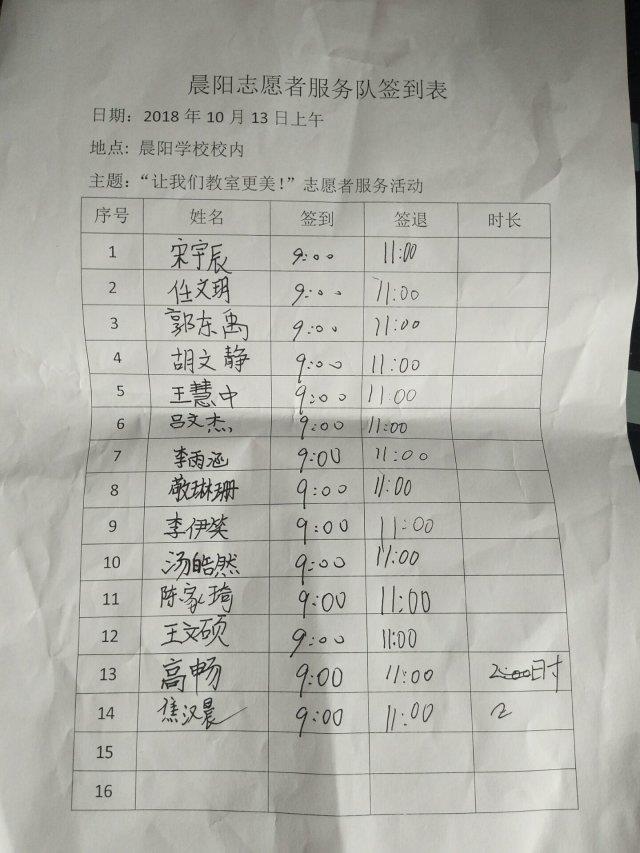 晨阳志愿者服务队签到表
日期：2018 年 10 月 13 日上午
地点: 晨阳学校校内
主题：“让我们教室更美！”志愿者服务活动
序号 姓名 签到 签退 时长
1 宋宇辰 9:00 11:00
2 任文玥 9:00 11:00
3 郭东禹 9:00 11:00
4 胡文静 9:00 11:00
5 王慧中 9:00 11:00
6 吕文杰 9:00 11:00
7 李雨涵 9:00 11:00
8 敬琳珊 9:00 11:00
9 李伊笑 9:00 11:00
10 汤皓然 9:00 11:00
11 陈家琦 9:00 11:00
12 王文硕 9:00 11:00
13 高畅 9:00 11:00 2时
14 焦汉晨 9:00 11:00 2
15
16